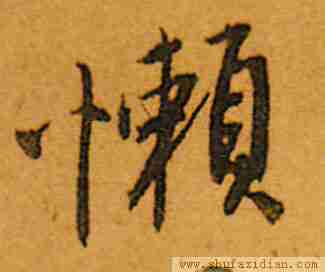 懶
www.shufazidian.com